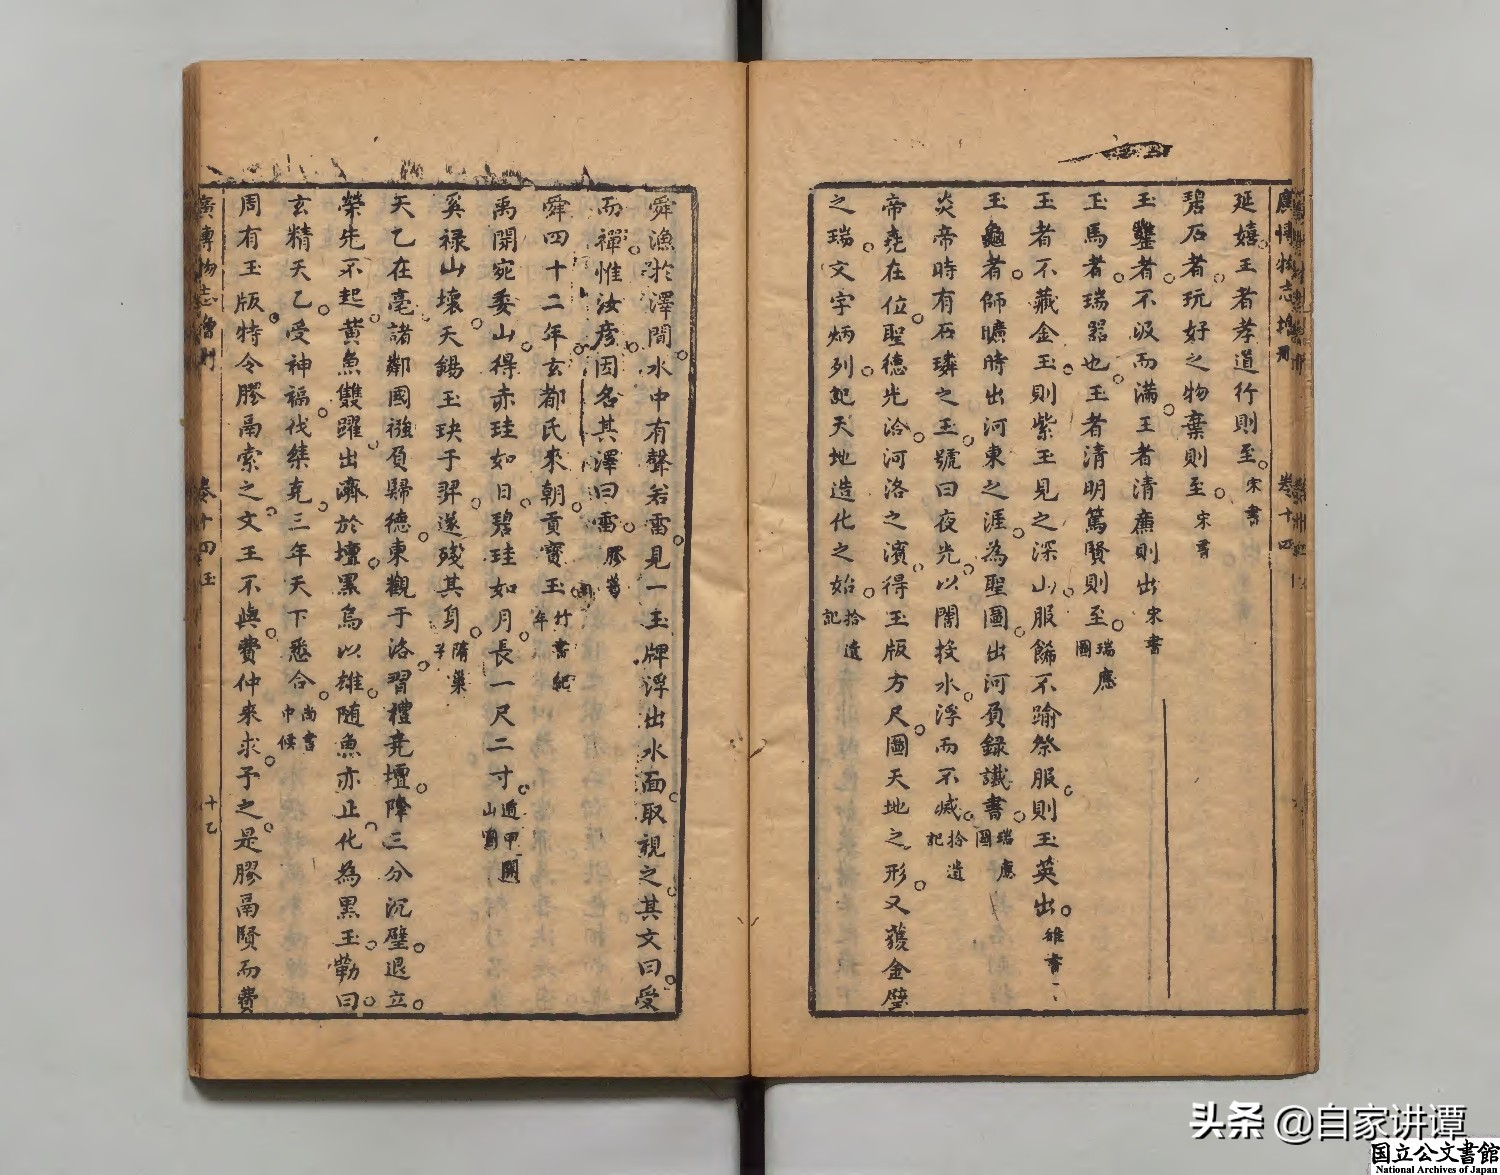 延嬉王者孝道行則至宋書
碧石者玩好之物棄則至宋書
玉罋者不汲而滿王者清廉則出宋書
玉馬者瑞器也王者清明篤賢則至瑞應圖
王者不藏金玉則紫玉見之深山服飾不踰祭服則玉英出雒書
玉龜者師曠時出河東之涯為聖圖出河負録讖書瑞應圖
炎帝時有石璘之玉號曰夜光以闇投水浮而不滅拾遺記
帝堯在位聖德光洽河洛之濱得玉版方尺圖天地之形又獲金璧
之瑞文字炳列記天地造化之始拾遺記
舜漁於澤間水中有聲若雷見一玉牌浮出水面取視之其文曰受
而禪惟汝彦因名其澤曰雷
舜四十二年玄都氏來朝貢寳玉竹書紀年
禹開宛委山得赤珪如日碧珪如月長一尺二寸遁甲開山圖
奚禄山壞天錫玉玦于羿遂殘其身隋巢子
天乙在亳諸鄰國襁負歸德東觀于洛習禮堯壇降三分沉璧退立
榮光不起黄魚雙躍出濟於壇黑烏以雄随魚亦止化為黑玉勒曰
玄精天乙受神福伐桀克三年天下悉合尚書中候
周有玉版特令膠鬲索之文王不與費仲來求予之是膠鬲賢而費
廣博物志
卷十四
玉
頭条 @自家讲谭
国立公文書館
National Archives of Japan